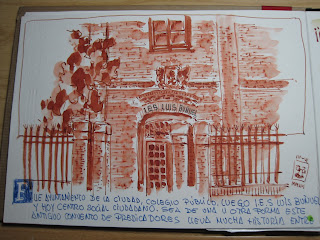 I.E.S. LUIS BUÑUEL
FUE AYUNTAMIENTO DE LA CIUDAD, COLEGIO PÚBLICO, LUEGO I.E.S LUIS BUÑUEL
Y HOY CENTRO SOCIAL CIUDADANO. SEA DE UNA U OTRA FORMA ESTE
ANTIGUO CONVENTO DE PREDICADORES LLEVA MUCHA HISTORIA ENTRE